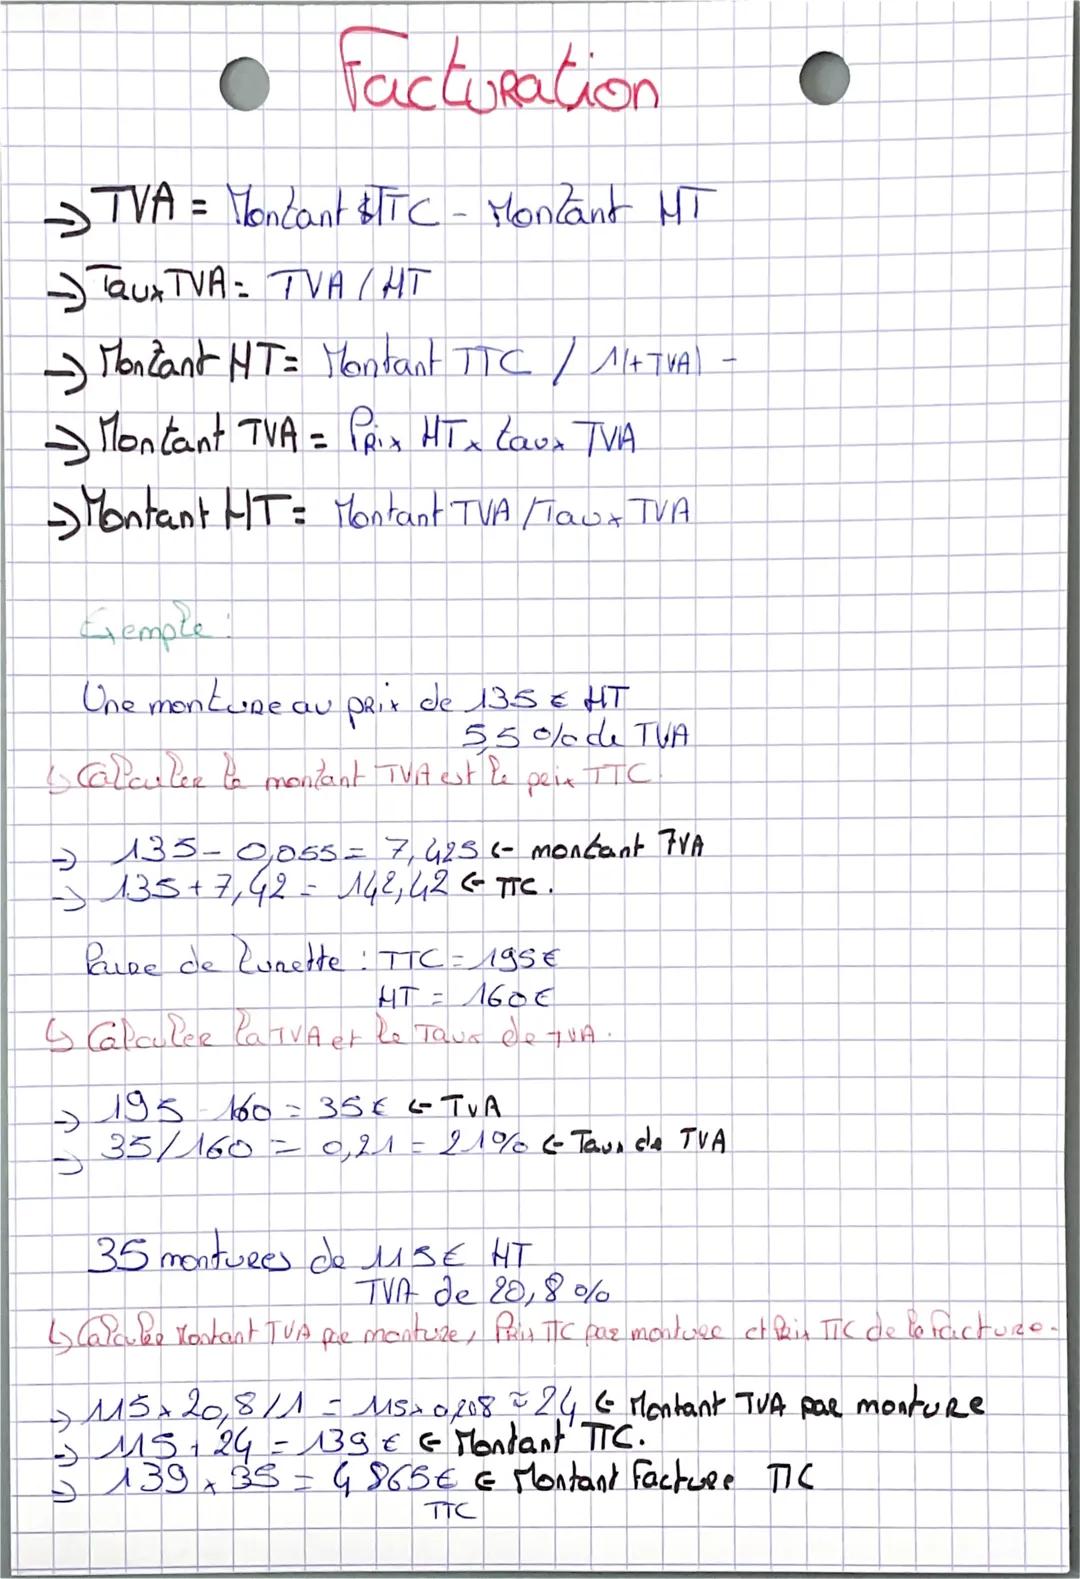 Facturation
→ TVA = Montant TTC - Montant HT
→ Taux TVA = TVA / HT
→ Montant HT = Montant TTC / 1(+TVA) -
→ Montant TVA = Prix HT x taux TVA
→ Montant HT = Montant TVA / Taux TVA
Exemple :
Une monture au prix de 135 € HT
5,5 % de TVA
↳ Calculer le montant TVA est le prix TTC.
→ 135 - 0,055 = 7,425 ← montant TVA
→ 135 + 7,42 = 142,42 ← TTC.
Paire de lunette : TTC = 195 €
HT = 160 €
↳ Calculer la TVA et le Taux de TVA.
→ 195 - 160 = 35 € ← TVA
→ 35/160 = 0,21 = 21% ← Taux de TVA
35 montures de 115 € HT
TVA de 20,8 %
↳ Calculer Montant TVA par monture, Prix TTC par monture et Prix TTC de la facture.
→ 115 x 20,8/1 = 115 x 0,208 ≈ 24 ← Montant TVA par monture
→ 115 + 24 = 139 € ← Montant TTC.
→ 139 x 35 = 4 865 € ← Montant Facture TTC
TTC